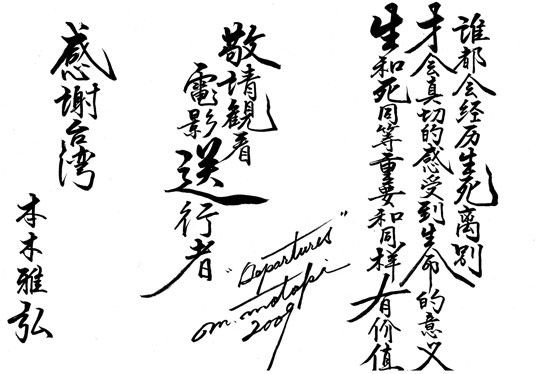 谁都会经历生死离别
才会真切的感受到生命的意义
生和死同等重要和同样有价值
敬请観看
電影送行者
"Departures"
m. motoki
2009
感谢台湾
本木雅弘